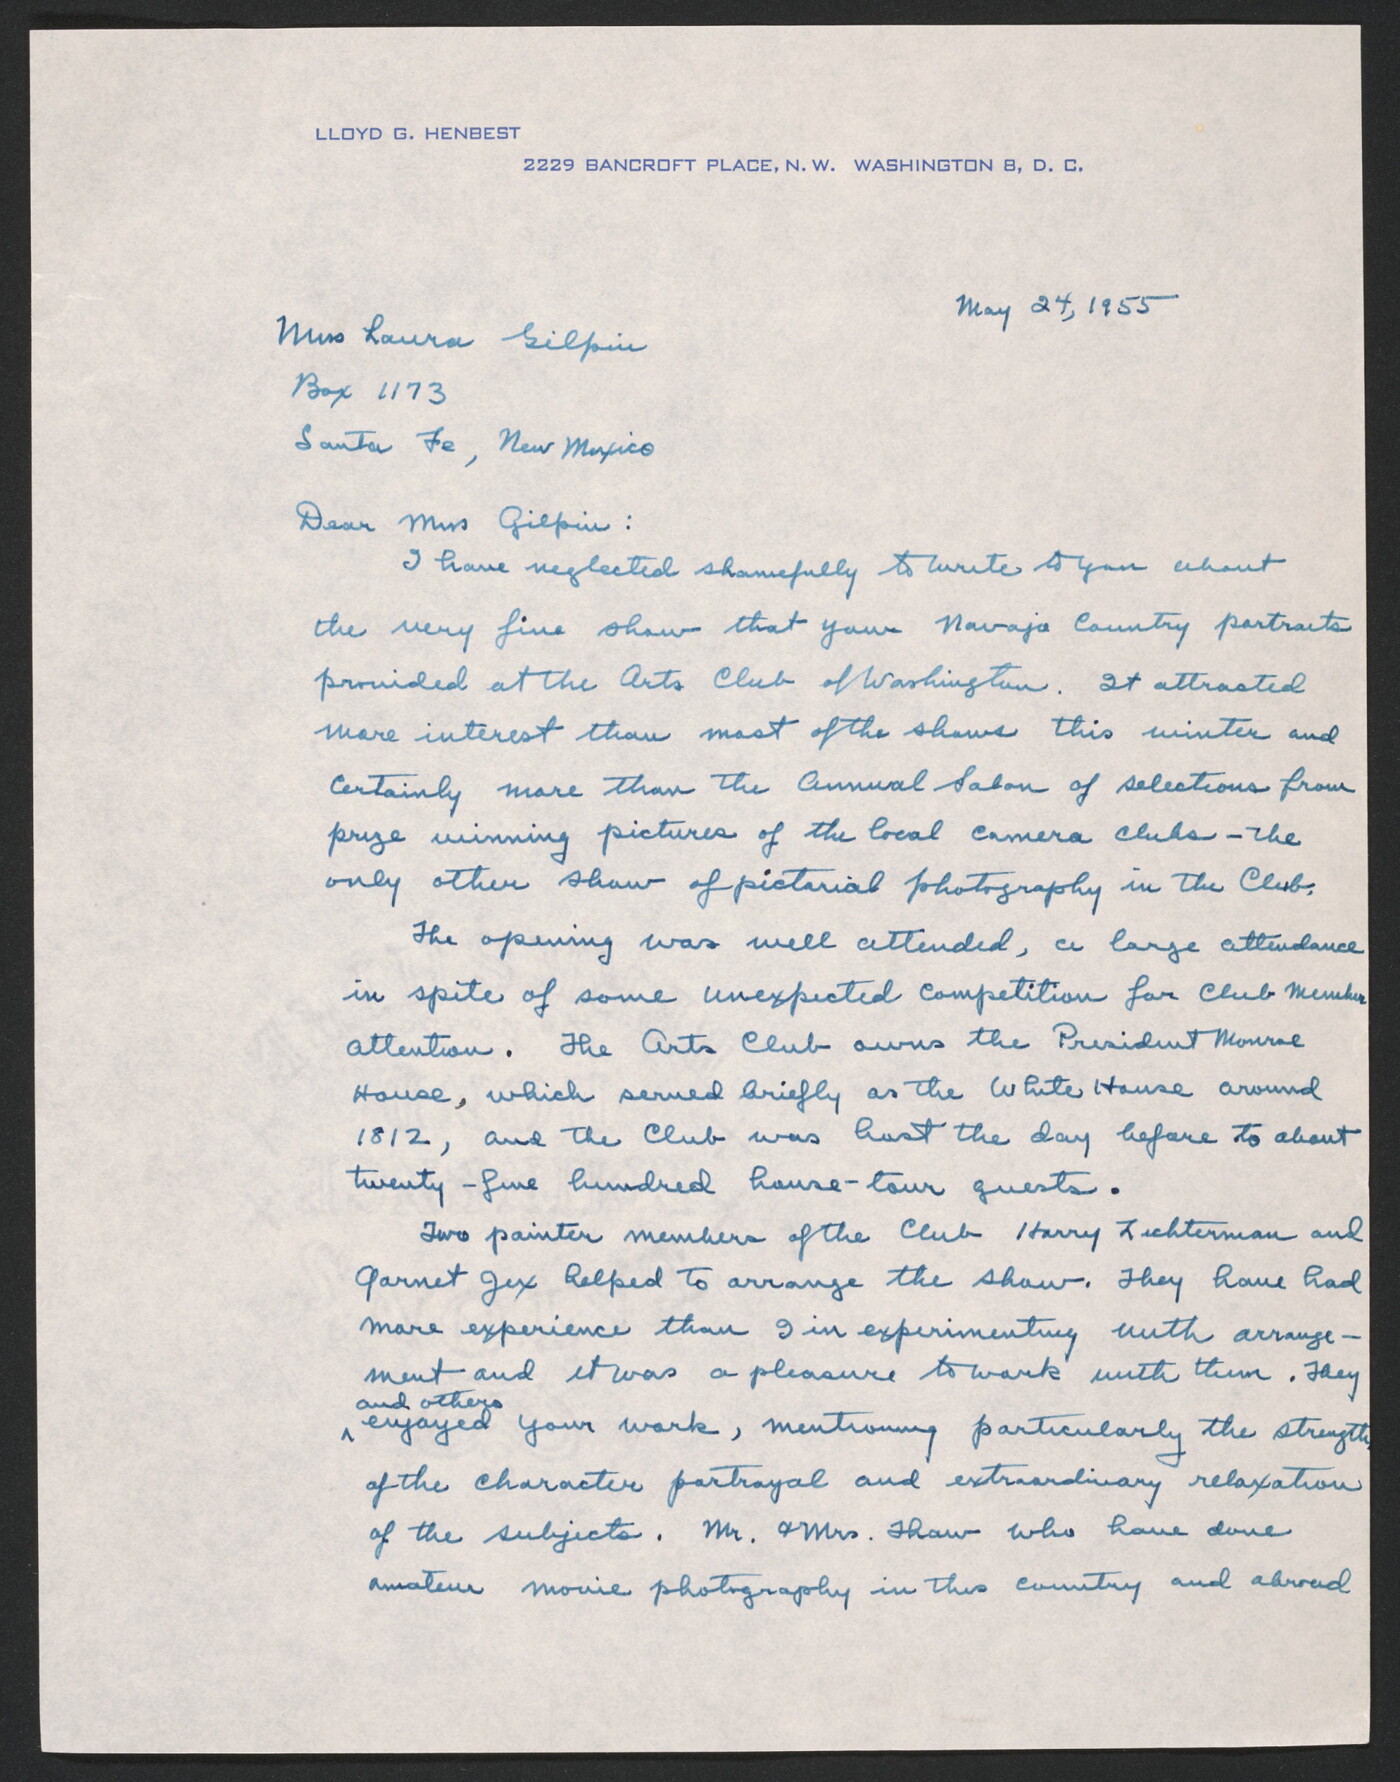 LLOYD G. HENBEST
2229 BANCROFT PLACE, N. W. WASHINGTON 8, D. C.
May 24, 1955
Miss Laura Gilpin
Box 1173
Santa Fe, New Mexico
Dear Miss Gilpin:
I have neglected shamefully to write to you about
the very fine show that your Navajo Country portraits
provided at the Arts Club of Washington. It attracted
more interest than most of the shows this winter and
certainly more than the Annual Salon of selections from
prize winning pictures of the local camera clubs - the
only other show of pictorial photography in the Club.
The opening was well attended, a large attendance
in spite of some unexpected competition for Club Member
attention. The Arts Club owns the President Monroe
House, which served briefly as the White House around
1812, and the Club was host the day before to about
twenty-five hundred house-tour guests.
Two painter members of the Club Harry Lichterman and
Garnet Jex helped to arrange the show. They have had
more experience than I in experimenting with arrange-
ment and it was a pleasure to work with them. They
and others
^ enjoyed your work, mentioning particularly the strength
of the character portrayal and extraordinary relaxation
of the subjects. Mr. & Mrs. Thaw who have done
amateur movie photography in this country and abroad